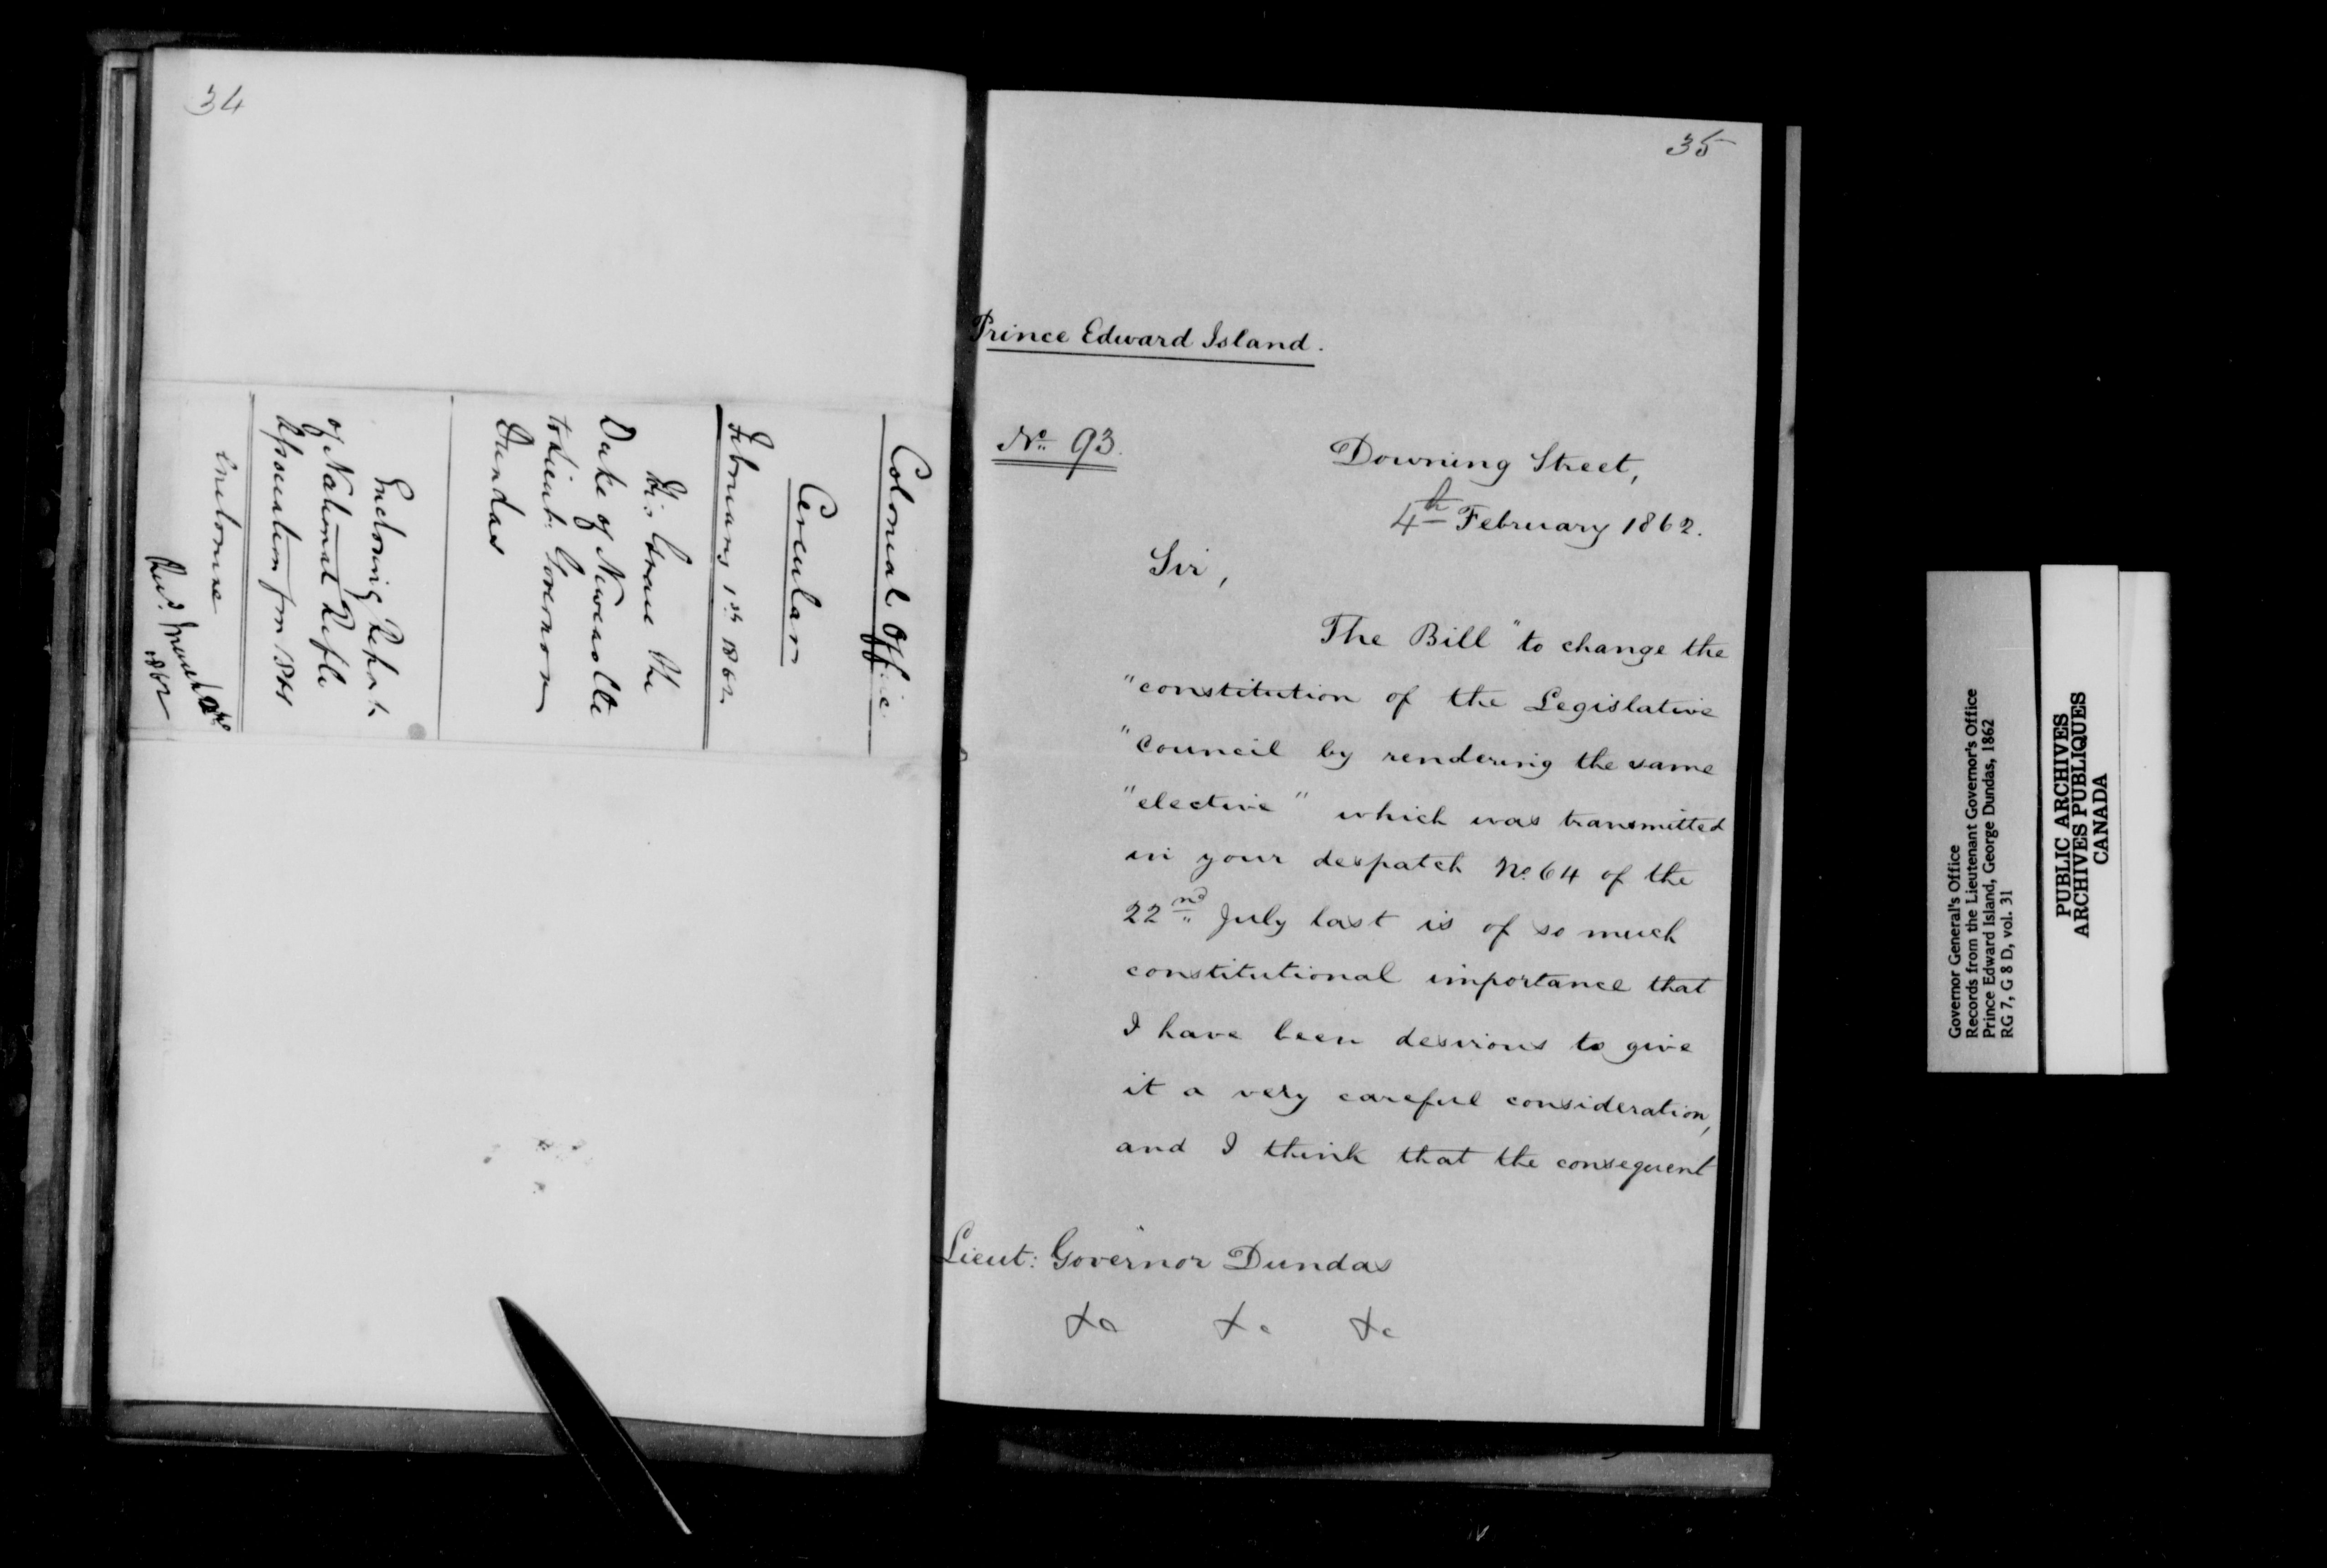 34
Colonial Office
Circular
February 1st 1862
His Grace the
Duke of Newcastle
to Lieut: Governor
Dundas
Enclosing Report
of National Rifle
Association for 1861
1 inclosure
Recd. 
1862
35
Prince Edward Island.
No. 93.
Downing Street,
4th February 1862.
Sir,
The Bill "to change the
"constitution of the Legislative
"Council by rendering the same
"elective" which was transmitted
in your despatch No. 64 of the
22nd July last is of so much
constitutional importance that
I have been desirous to give
it a very careful consideration,
and I think that the consequent
Lieut: Governor Dundas
&c &c &c
Governor General's Office
Records from the Lieutenant Governor's Office
Prince Edward Island, George Dundas, 1862
RG 7, G 8 D, vol. 31
PUBLIC ARCHIVES
ARCHIVES PUBLIQUES
CANADA